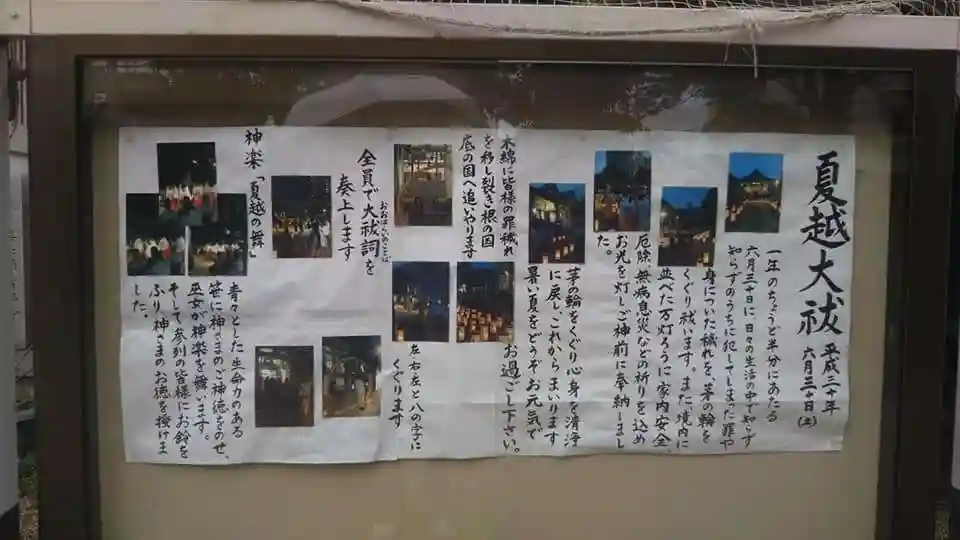 夏越大祓
平成三十年
六月三十日(土)
一年のちょうど半分にあたる
六月三十日に、日々の生活の中で知らず
知らずのうちに犯してしまった罪や
身についた穢れを、茅の輪を
くぐり祓います。また、境内に
並べた万灯ろうに家内安全、
厄除、無病息災などの祈りを込め
お光を灯しご神前に奉納しまし
た。
茅の輪をくぐり心身を清浄
に戻し、これからまいります
暑い夏をどうぞお元気で
お過ごし下さい。
木綿に皆様の罪穢れ
を移し裂き根の国
底の国へ追いやります
左右左と八の字に
くぐります
全員で大祓詞を
おおはらいのことば
奏上します
神楽「夏越の舞」
青々とした生命力のある
笹に神さまのご神徳をのせ、
巫女が神楽を舞います。
そして参列の皆様にお鈴を
ふり神さまのお徳を授けま
した。